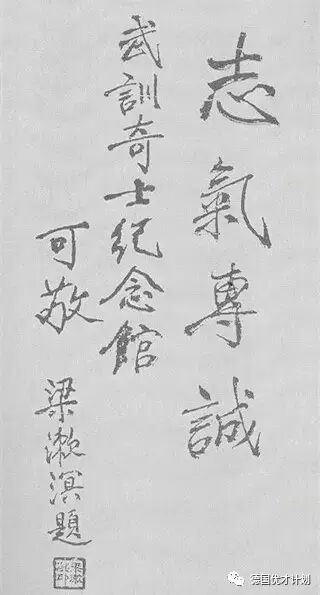 志氣專誠
武訓奇士紀念館
可敬
梁漱溟題
德国优才计划